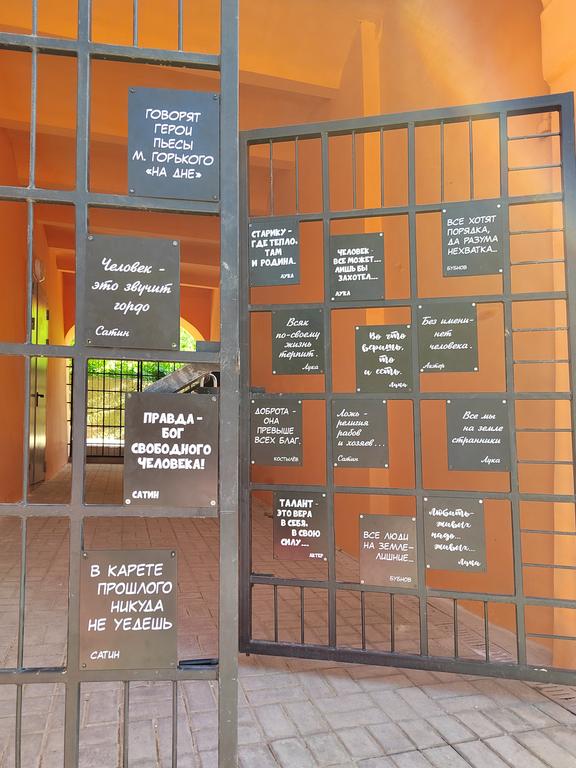 ГОВОРЯТ
ГЕРОИ
ПЬЕСЫ
М. ГОРЬКОГО
«НА ДНЕ»
Человек -
это звучит
гордо
Сатин
ПРАВДА -
БОГ
СВОБОДНОГО
ЧЕЛОВЕКА!
САТИН
В КАРЕТЕ
ПРОШЛОГО
НИКУДА
НЕ УЕДЕШЬ
САТИН
СТАРИКУ -
ГДЕ ТЕПЛО,
ТАМ
И РОДИНА.
ЛУКА
ЧЕЛОВЕК -
ВСЕ МОЖЕТ...
ЛИШЬ БЫ
ЗАХОТЕЛ...
ЛУКА
ВСЕ ХОТЯТ
ПОРЯДКА,
ДА РАЗУМА
НЕХВАТКА...
БУБНОВ
Всяк
по-своему
жизнь
терпит.
Лука
Во что
веришь,
то
и есть.
Лука
Без имени-
нет
человека.
Актер
ДОБРОТА -
ОНА
ПРЕВЫШЕ
ВСЕХ БЛАГ.
КОСТЫЛЕВ
Ложь-
религия
рабов
и хозяев...
Сатин
Все мы
на земле
странники
Лука
ТАЛАНТ-
ЭТО ВЕРА
В СЕБЯ,
В СВОЮ
СИЛУ...
АКТЕР
ВСЕ ЛЮДИ
НА ЗЕМЛЕ-
ЛИШНИЕ...
БУБНОВ
Любить-
живых
надо...
живых...
Лука